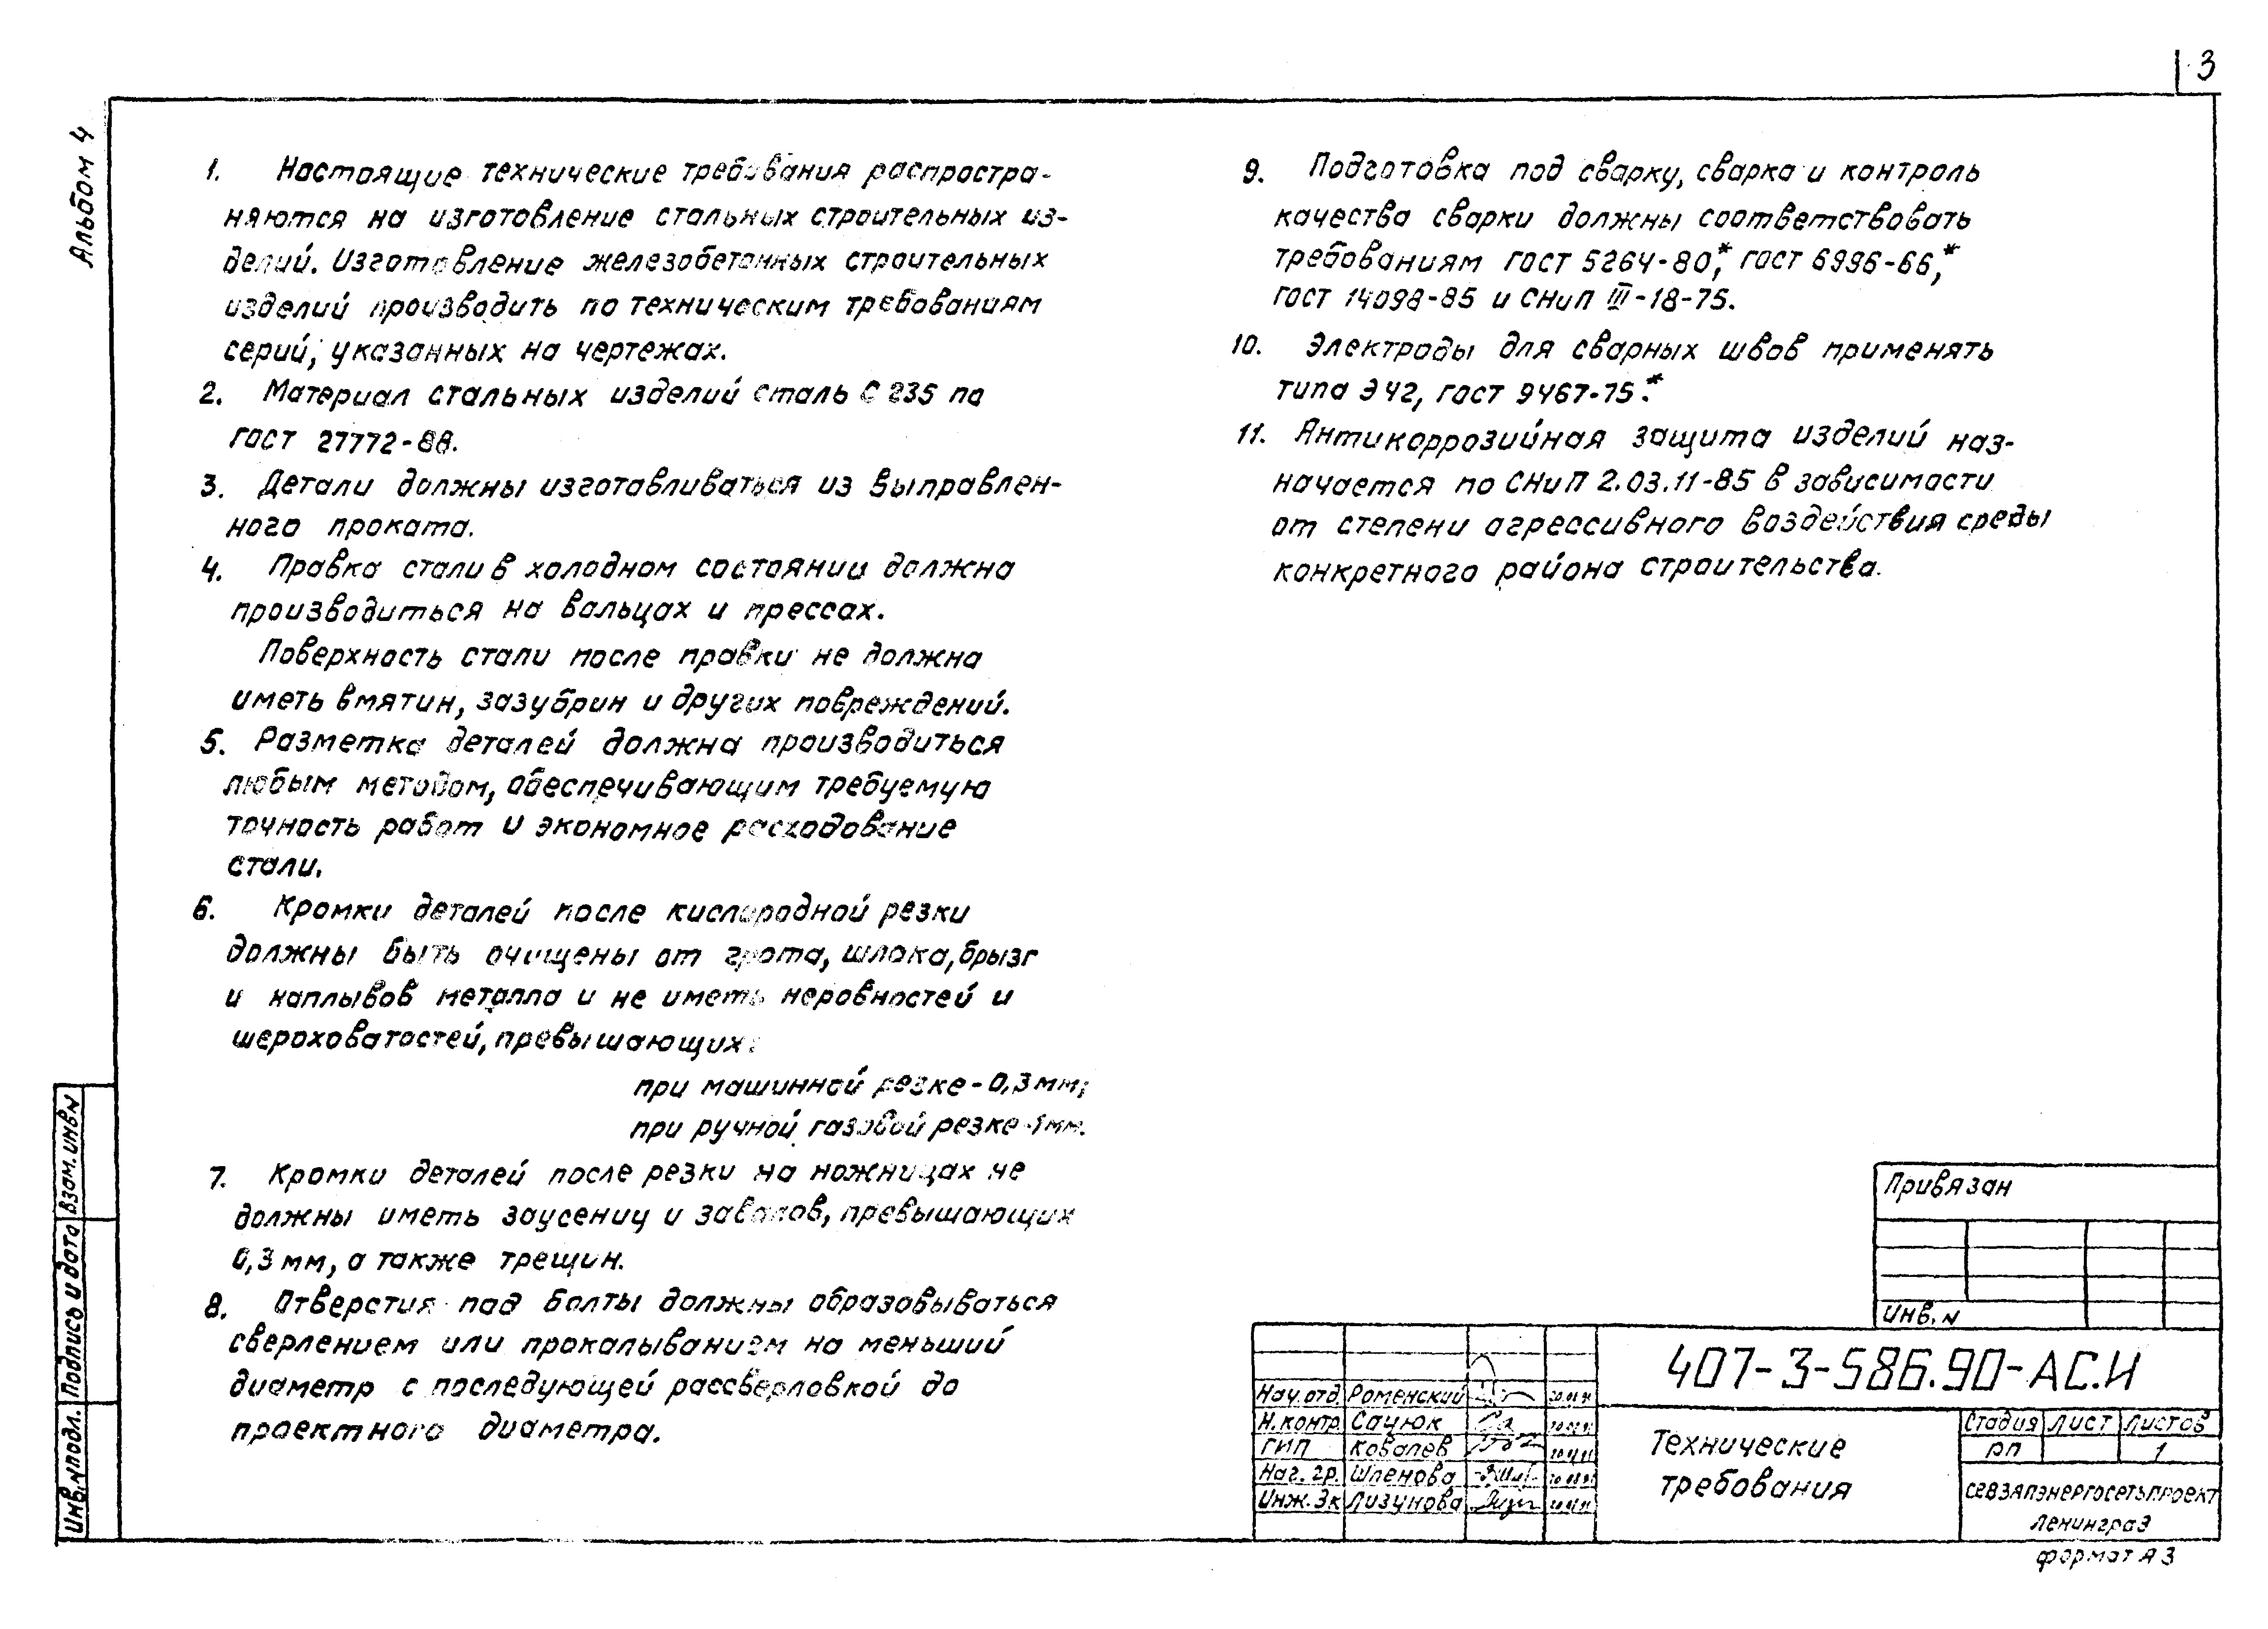 3
Альбом 4
1. Настоящие технические требования распростра-
няются на изготовление стальных строительных из-
делий. Изготовление железобетонных строительных
изделий производить по техническим требованиям
серий, указанных на чертежах.
2. Материал стальных изделий сталь С 235 по
ГОСТ 27772-88.
3. Детали должны изготавливаться из выправлен-
ного проката.
4. Правка стали в холодном состоянии должна
производиться на вальцах и прессах.
Поверхность стали после правки не должна
иметь вмятин, зазубрин и других повреждений.
5. Разметка деталей должна производиться
любым методом, обеспечивающим требуемую
точность работ и экономное расходование
стали.
6. Кромки деталей после кислородной резки
должны быть очищены от грата, шлака, брызг
и наплывов металла и не иметь неровностей и
шероховатостей, превышающих:
при машинной резке - 0,3 мм;
при ручной газовой резке - 1 мм.
7. Кромки деталей после резки на ножницах не
должны иметь заусениц и завалов, превышающих
0,3 мм, а также трещин.
8. Отверстия под болты должны образовываться
сверлением или прокалыванием на меньший
диаметр с последующей рассверловкой до
проектного диаметра.
9. Подготовка под сварку, сварка и контроль
качества сварки должны соответствовать
требованиям ГОСТ 5264-80*, ГОСТ 6996-66*,
ГОСТ 14098-85 и СНиП III-18-75.
10. Электроды для сварных швов применять
типа Э42, ГОСТ 9467-75*.
11. Антикоррозийная защита изделий наз-
начается по СНиП 2.03.11-85 в зависимости
от степени агрессивного воздействия среды
конкретного района строительства.
Взам. инв N
Подпись и дата
Инв. N подл.
Привязан
Инв. N
407-3-586.90-АС.И
Нач. отд. Роменский
Н. контр. Сацюк
ГИП Ковалев
Наг. гр. Шленова
Инж. Зк Лизунова
Технические
требования
Стадия Лист Листов
РП 1
Севзапэнергосетьпроект
Ленинград
формат А3